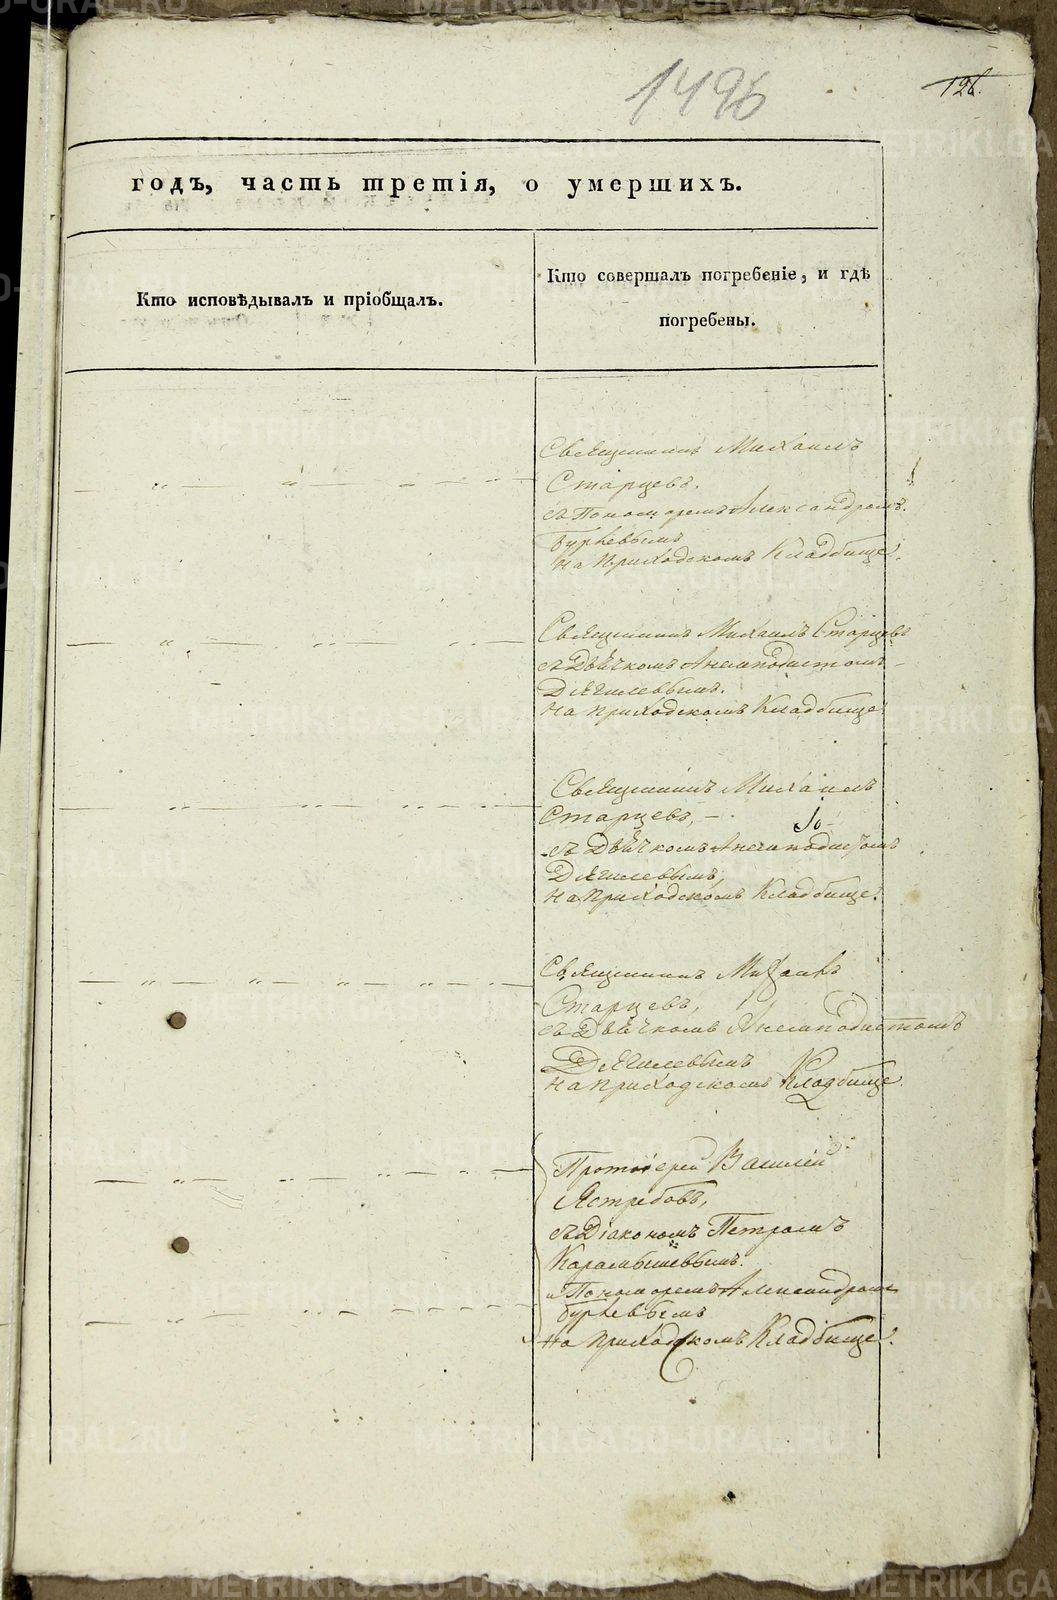 1496
126.
годъ, часть третія, о умершихъ.
Кто исповѣдывалъ и пріобщалъ.
Кто совершалъ погребеніе, и гдѣ
погребены.
Священникъ Михаилъ
Старцевъ.
съ Пономаремъ Александромъ
на приходскомъ Кладбище.
Священникъ Михаилъ Старцевъ
съ Дьячкомъ Анемподистомъ
Дягилевымъ.
на приходскомъ Кладбище
Священникъ Михаилъ
Старцевъ,
съ Дьячкомъ Анемподистомъ
Дягилевымъ,
на приходскомъ Кладбище.
Священникъ Михаилъ
Старцевъ,
съ Дьячкомъ Анемподистомъ
Дягилевымъ
на приходскомъ Кладбище.
Протоіерей Василій
Ястребовъ,
съ Діакономъ Петромъ
Карамышевымъ.
и Пономаремъ Александромъ
на приходскомъ Кладбище.
METRIKI.GASO-URAL.RU